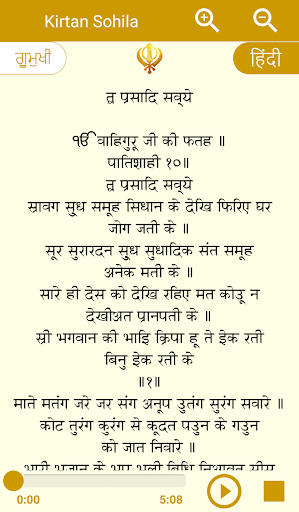 Kirtan Sohila
ਗੁਮੁਖੀ
हिंदी
त्व प्रसादि सव्ये
ੴ वाहिगुरू जी की फतह ॥
पातिशाही १०॥
त्व प्रसादि सव्ये
स्रावग सु्ध समूह सिधान के देखि फिरिए घर
जोग जती के ॥
सूर सुरारदन सु्ध सुधादिक संत समूह
अनेक मती के ॥
सारे ही देस को देखि रहिए मत कोउू न
देखीअत प्रानपती के ॥
स्री भगवान की भाइि क्रिपा हू ते इेक रती
बिनु इेक रती के
॥१॥
माते मतंग जरे जर संग अनूप उुतंग सुरंग सवारे ॥
कोट तुरंग कुरंग से कूदत पउुन के गउुन
को जात निवारे ॥
भारी भुजान के भूप भली बिधि निआवत सीस
0:00
5:08